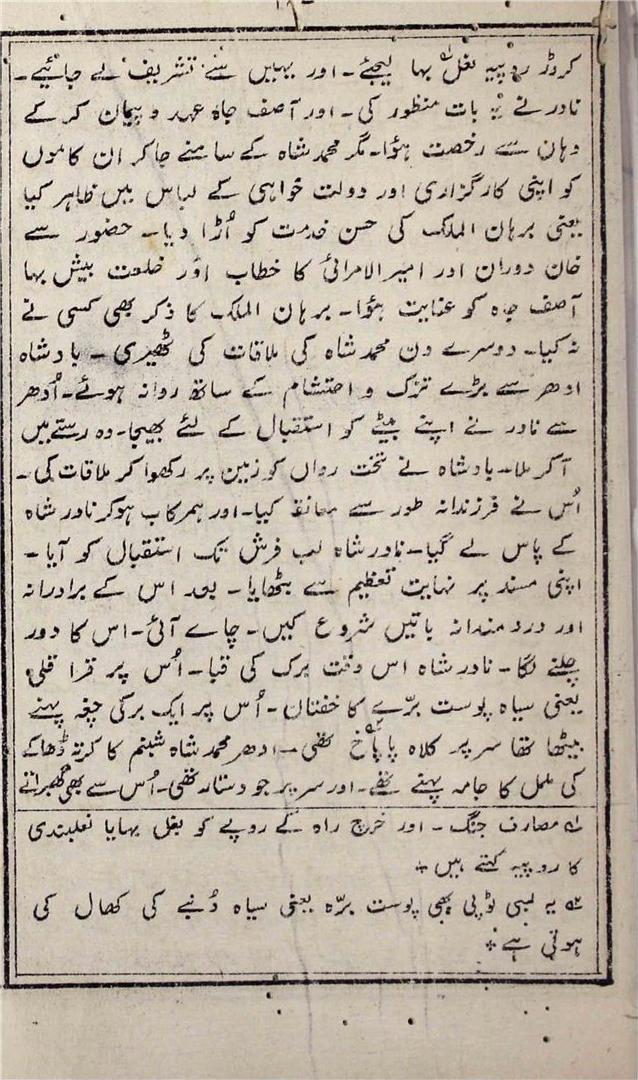 کروڑ روپیہ نعل بہا لیجئے۔ اور یہیں سے تشریف لے جائیے۔
نادر نے یہ بات منظور کی۔ اور آصف جاہ عہد و پیمان کر کے
وہاں سے رخصت ہؤا۔ مگر محمد شاہ کے سامنے جا کر ان کاموں
کو اپنی کارگزاری اور دولت خواہی کے لباس میں ظاہر کیا
یعنی برہان الملک کی حسن خدمت کو اُڑا دیا۔ حضور سے
خان دوران اور امیر الامرائی کا خطاب اور خلعت بیش بہا
آصف جاہ کو عنایت ہؤا۔ برہان الملک کا ذکر بھی کسی نے
نہ کیا۔ دوسرے دن محمد شاہ کی ملاقات کی ٹھیری۔ بادشاہ
ادھر سے بڑے تزک و احتشام کے ساتھ روانہ ہوئے۔ اُدھر
سے نادر نے اپنے بیٹے کو استقبال کے لئے بھیجا۔ وہ رستے میں
آ کر ملا۔ بادشاہ نے تخت رواں کو زمین پر رکھوا کر ملاقات کی۔
اُس نے فرزندانہ طور سے معانقہ کیا۔ اور ہمرکاب ہو کر نادر شاہ
کے پاس لے گیا۔ نادر شاہ لب فرش تک استقبال کو آیا۔
اپنی مسند پر نہایت تعظیم سے بٹھایا۔ بعد اس کے برادرانہ
اور دردمندانہ باتیں شروع کیں۔ چاے آئی۔ اس کا دور
چلنے لگا۔ نادر شاہ اس وقت برک کی قبا۔ اُس پر قرا قلی
یعنی سیاہ پوست برّے کا خفتان۔ اُس پر ایک برکی چغہ پہنے
بیٹھا تھا سر پر کلاہ پاپاخ تھی۔ ادھر محمد شاہ شبنم کا کرتہ ڈھاکے
کی ململ کا جامہ پہنے تھے۔ اور سر پر جو دستار تھی۔ اُس سے بھی گھبراتے
۱؎ مصارف جنگ۔ اور خرچ راہ کے روپے کو نعل بہا یا نعلبندی
کا روپیہ کہتے ہیں ٭
۲؎ یہ لمبی ٹوپی بھی پوست برّہ یعنی سیاہ دُنبے کی کھال کی
ہوتی ہے ٭